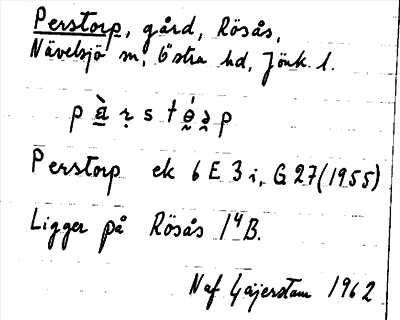 Perstorp, gård, Rösås,
Nävelsjö sn, Östra hd, Jönk. l.
Perstorp ek 6 E 3 i, G 27 (1955)
Ligger på Rösås 1⁴ B.
Naf Gäjerstam 1962